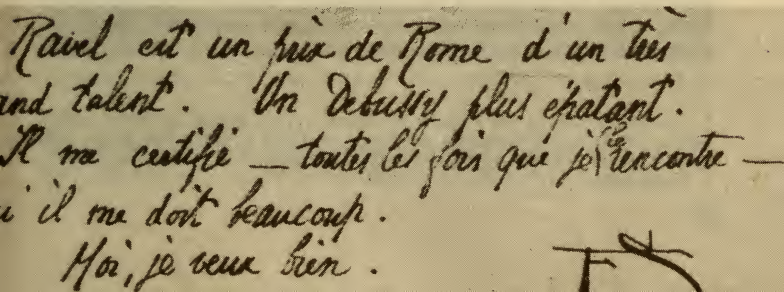 Ravel est un prix de Rome d'un très
and talent. Un Debussy plus épatant.
Il me certifie — toutes les fois que je le rencontre —
i il me doit beaucoup.
Moi, je veux bien.